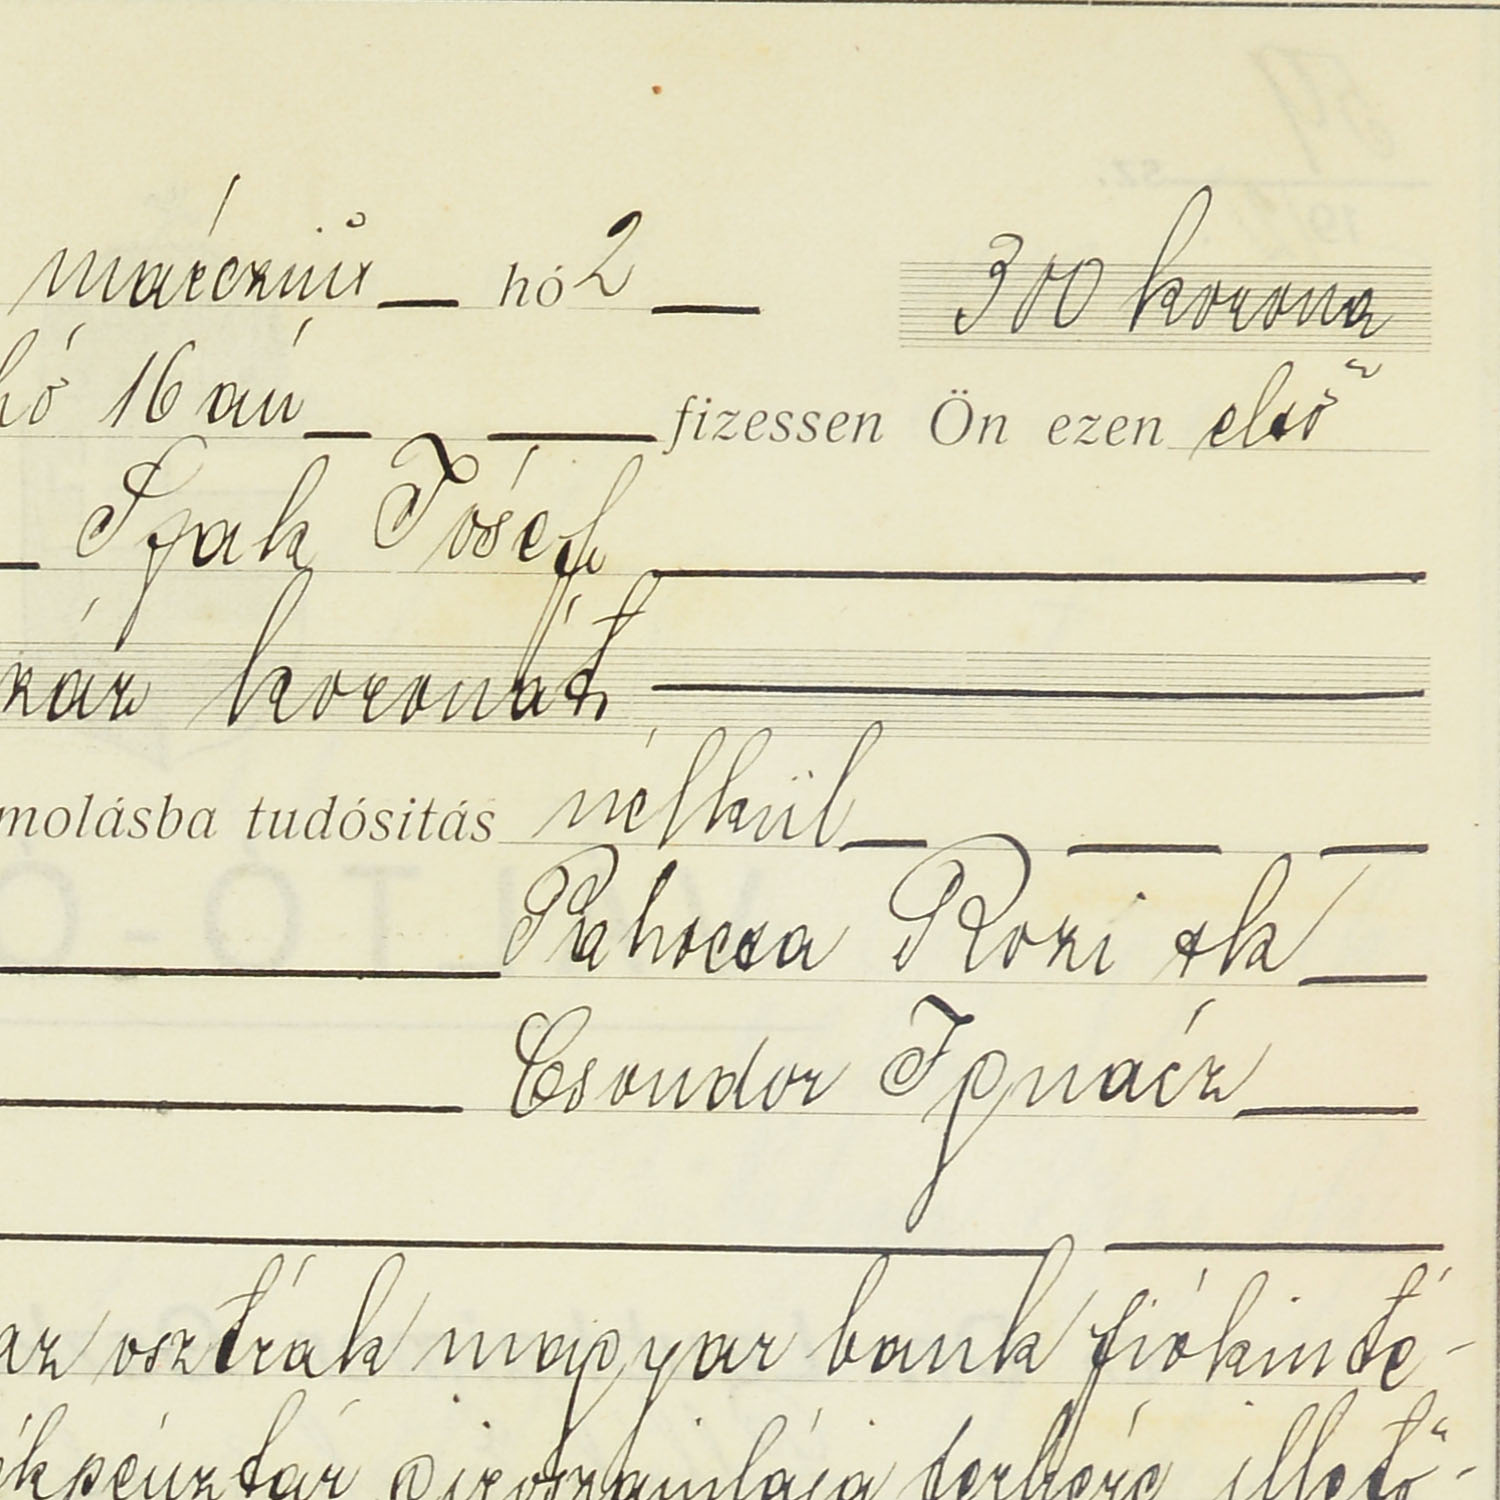 márczius hó 2 300 korona
hó 16 án fizessen Ön ezen első
Ipak József
száz koronát
molásba tudósitás nélkül
Rozi sk
Csondor Ignácz
az osztrák magyar bank fiókinté-
ékpénztár giroszámlája terhére illető-